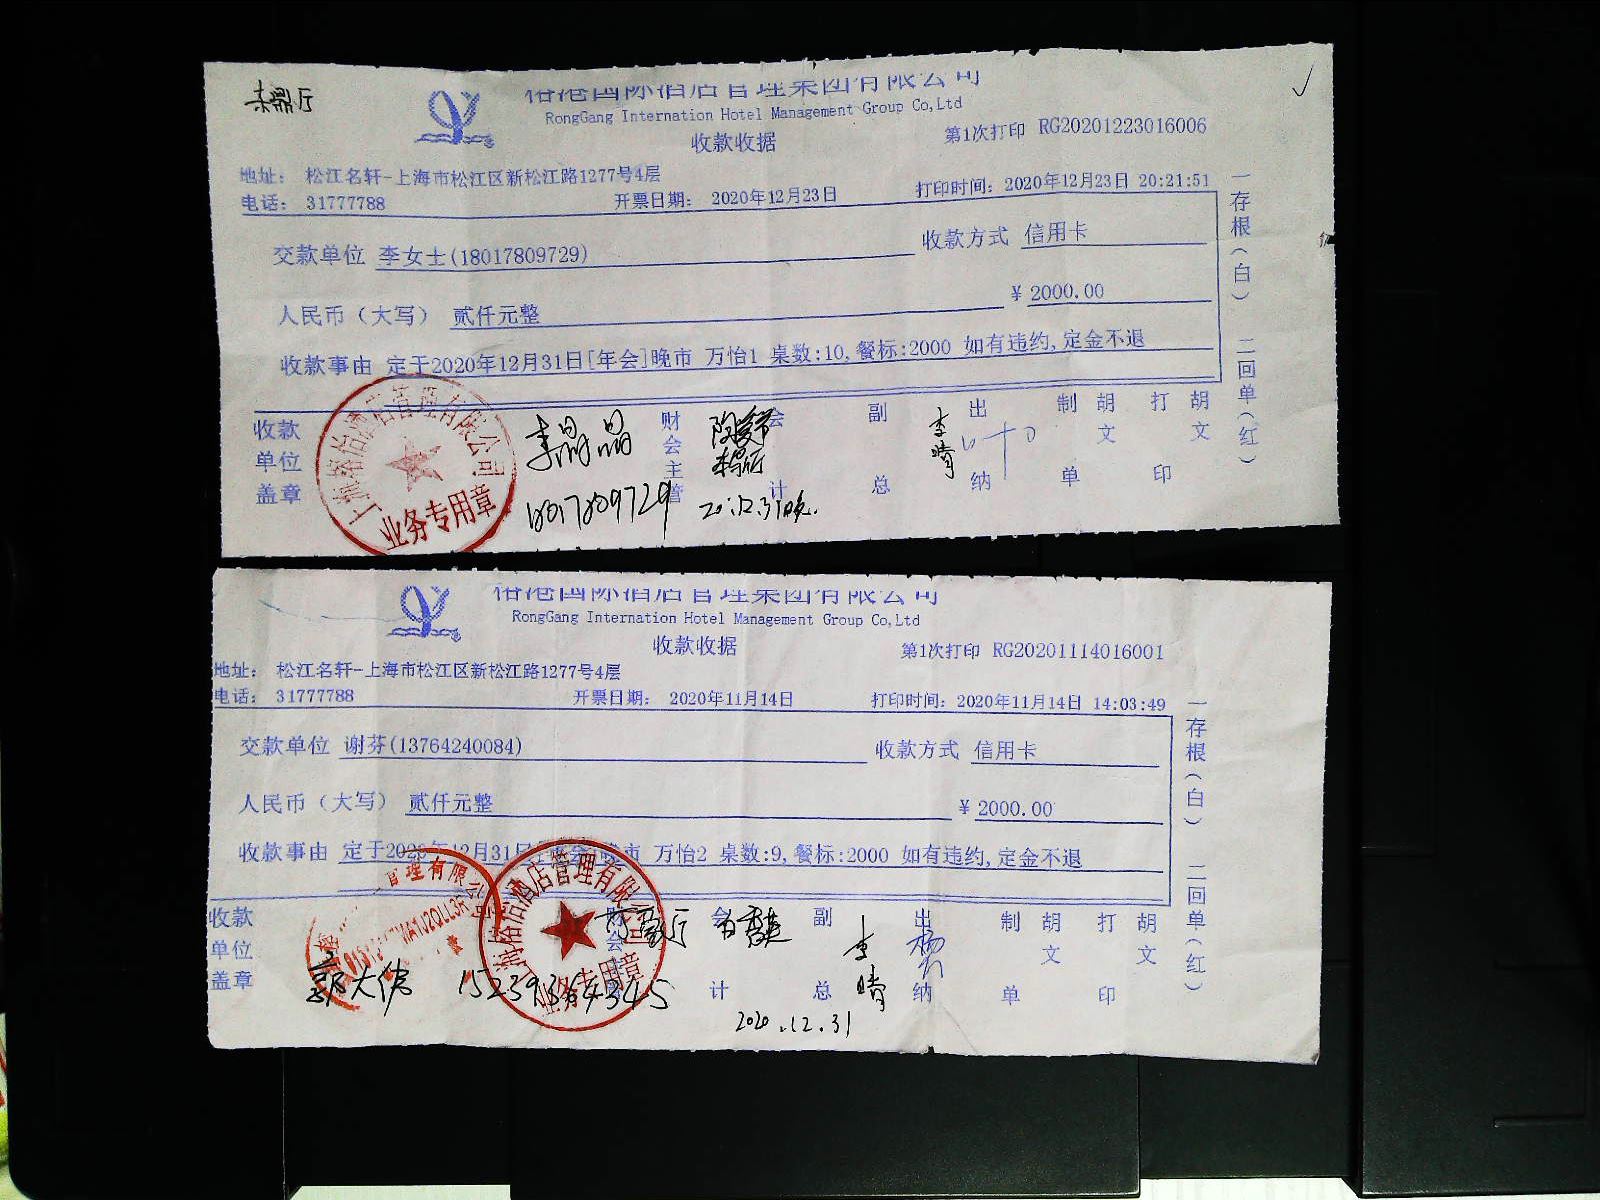 国际酒店管理集团有限公司
RongGang Internation Hotel Management Group Co,Ltd
收款收据
第1次打印 RG20201223016006
地址： 松江名轩-上海市松江区新松江路1277号4层
电话： 31777788 开票日期： 2020年12月23日 打印时间：2020年12月23日 20:21:51
交款单位 李女士(18017809729) 收款方式 信用卡
人民币（大写） 贰仟元整 ¥ 2000.00
收款事由 定于2020年12月31日[年会]晚市 万怡1 桌数:10,餐标:2000 如有违约,定金不退
一存根(白) 二回单(红)
收款单位盖章 财会主管 会计 副总 李晴 出纳 制单 胡文 打印 胡文
酒店管理有限公司
业务专用章
18017809729
国际酒店管理集团有限公司
RongGang Internation Hotel Management Group Co,Ltd
收款收据
第1次打印 RG20201114016001
地址： 松江名轩-上海市松江区新松江路1277号4层
电话： 31777788 开票日期： 2020年11月14日 打印时间：2020年11月14日 14:03:49
交款单位 谢芬(13764240084) 收款方式 信用卡
人民币（大写） 贰仟元整 ¥ 2000.00
收款事由 定于2020年12月31日 晚市 万怡2 桌数:9,餐标:2000 如有违约,定金不退
一存根(白) 二回单(红)
收款单位盖章 会计 副总 李晴 出纳 制单 胡文 打印 胡文
管理有限公司
酒店管理有限公司
业务专用章
郭大伟 15239364345
2020.12.31